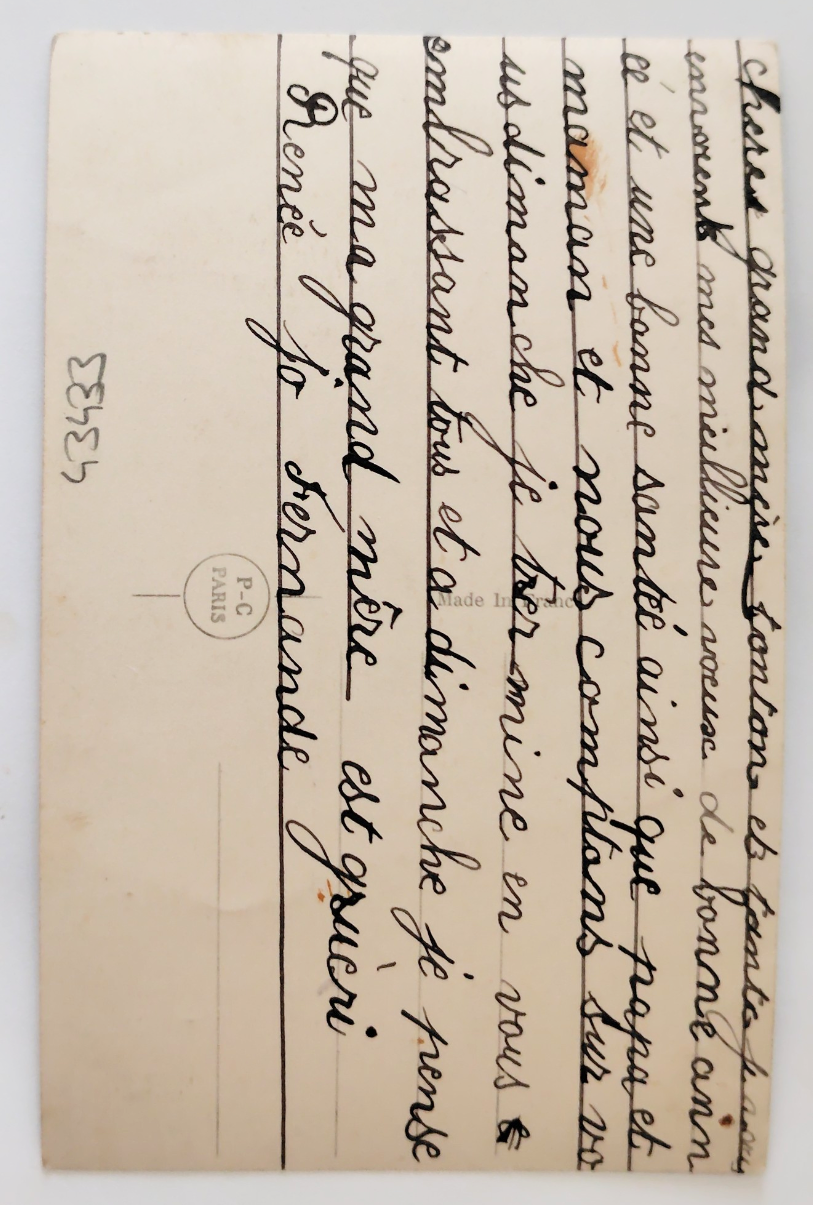 cheres grand mère tonton et tante je vous
envoient mes meillieure voeux de bonne ann
éé et une bonne santéé ainsi que papa et
maman et nous comptons sur vo
us dimanche je ter mine en vous
embrassant tous et a dimanche je pense
que ma grand mère est gruèri
Renée jo Fernande
Made In France
P-C
PARIS